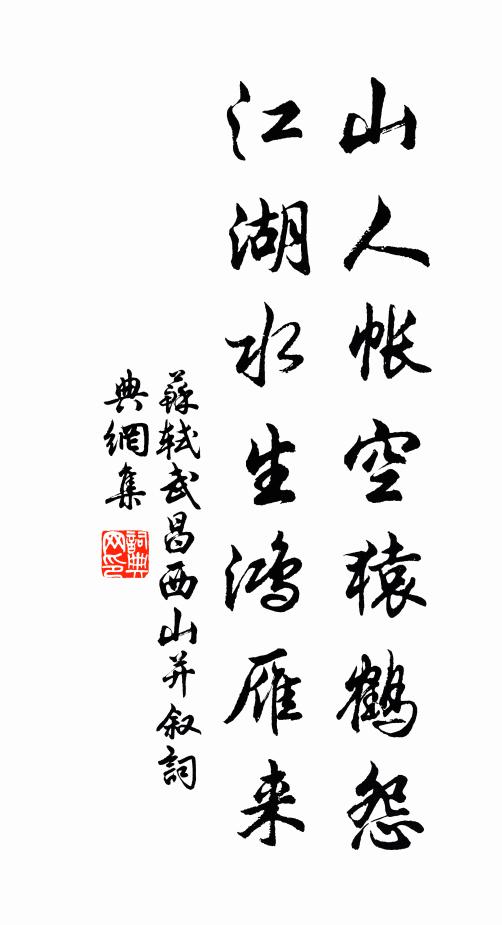 山人帐空猿鹤怨
江湖水生鸿雁来
蘇軾武昌西山并叙詞
典網集
詞典网印